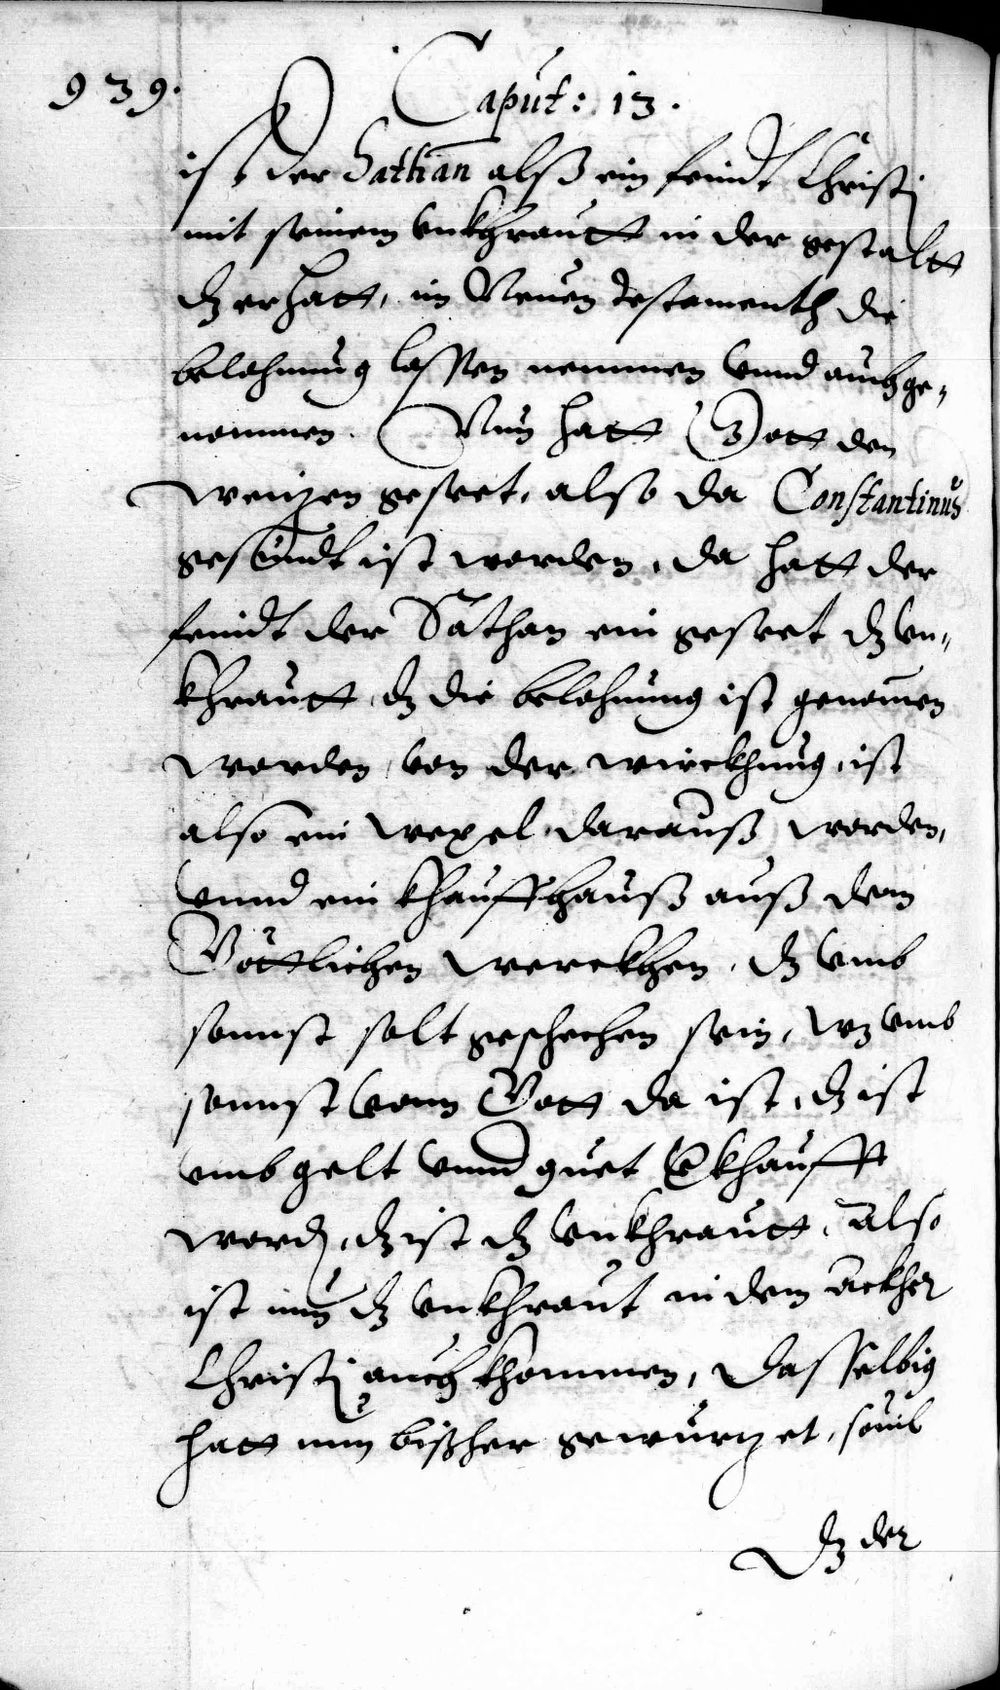 939.
Caput: 13.
ist der Sathan alß ein feindt Christj
mit seinem vnkhrautt in der gestaltt
dz er hatt, im Neuen testamenth die
belehnung lassen nemmen vnnd auch ge,
nommen. Nun hatt Gott den
weitzen geseet, also da Constantinus
gesundt ist worden, da hatt der
feindt der Sathan ein geseet dz vn,
khrautt, dz die belohnung ist genomen
worden, von der wirckhung, ist
also ein wexel darauß worden,
vnnd ein khauffhauß auß den
Göttlichen werckhen, dz vmb
sonnst solt geschechen sein, wz vmb
sonnst vonn Gott da ist, dz ist
vmb gelt vnnd guet verkhaufft
word, dz ist dz vnkhrautt, Also
ist nun dz vnkhraut in den Ackher
Christj auch khommen, dasselbig
hatt nun bißher gewurtzet, souil
dz der